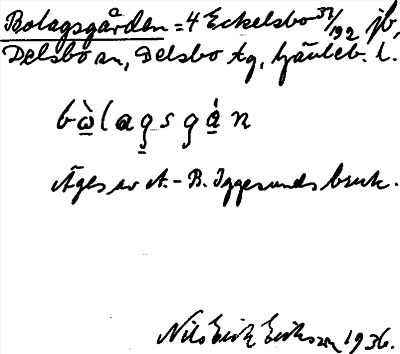 Bolagsgården = 4 Eckelsbo 37/192 jb,
Delsbo sn, Delsbo tg, Gävleb. l.
bὼ̲lag̲sgá̲n
Äges av A.-B. Iggesunds bruk.
Nils Erik Eriksson 1936.